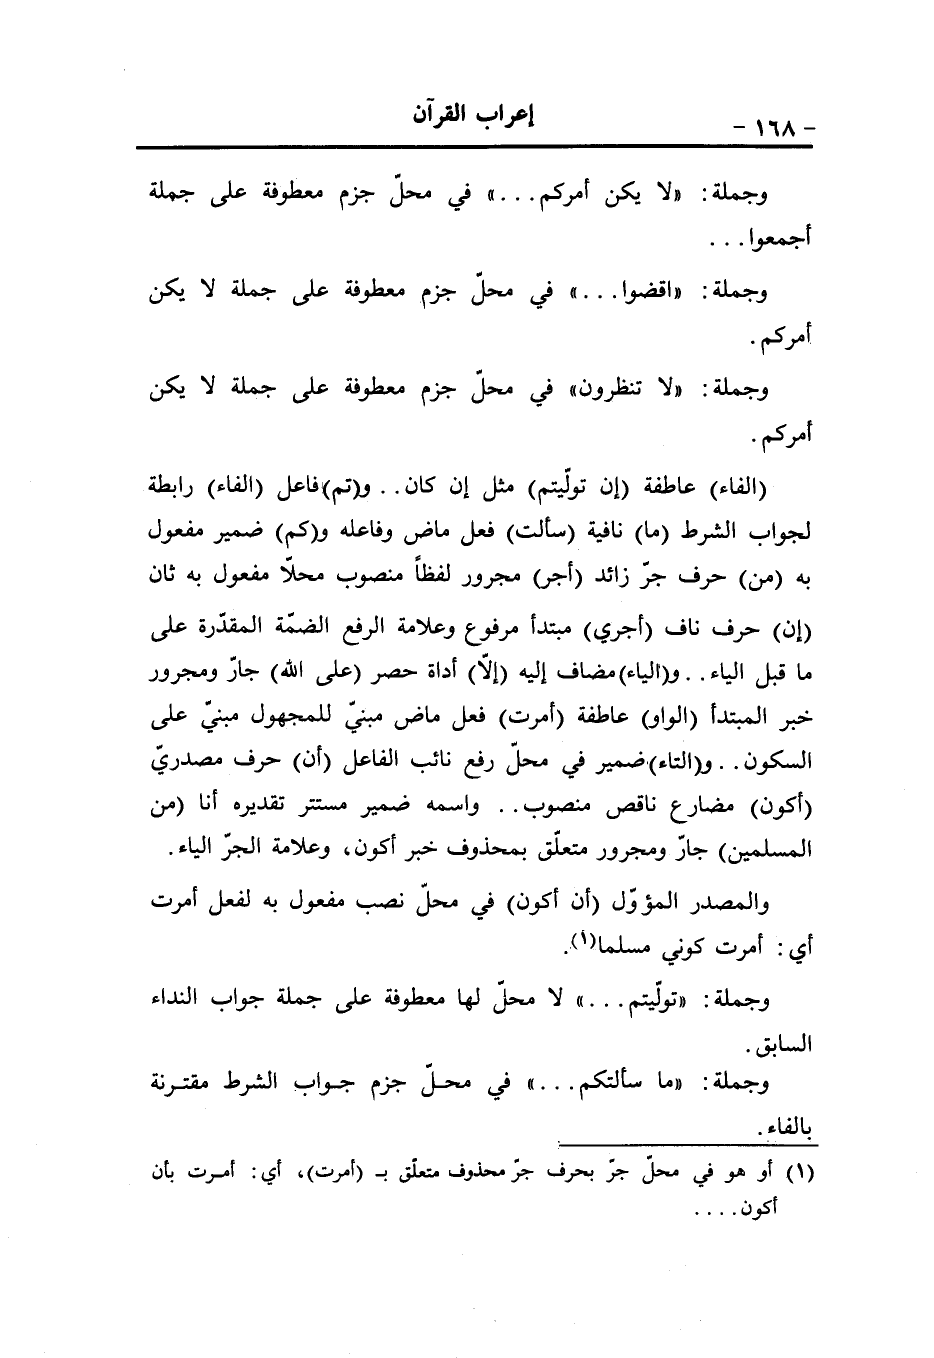 إعراب القرآن
- ١٦٨ -
وجملة: «لا يكن أمركم...» في محلّ جزم معطوفة على جملة
أجمعوا...
وجملة: «اقضوا...» في محلّ جزم معطوفة على جملة لا يكن
أمركم.
وجملة: «لا تنظرون» في محلّ جزم معطوفة على جملة لا يكن
أمركم.
(الفاء) عاطفة (إن تولّيتم) مثل إن كان.. و(تم)فاعل (الفاء) رابطة
لجواب الشرط (ما) نافية (سألت) فعل ماض وفاعله و(كم) ضمير مفعول
به (من) حرف جرّ زائد (أجر) مجرور لفظاً منصوب محلّا مفعول به ثان
(إن) حرف ناف (أجري) مبتدأ مرفوع وعلامة الرفع الضمّة المقدّرة على
ما قبل الياء.. و(الياء)مضاف إليه (إلّا) أداة حصر (على الله) جارّ ومجرور
خبر المبتدأ (الواو) عاطفة (أمرت) فعل ماض مبنيّ للمجهول مبنيّ على
السكون.. و(التاء)ضمير في محلّ رفع نائب الفاعل (أن) حرف مصدريّ
(أكون) مضارع ناقص منصوب.. واسمه ضمير مستتر تقديره أنا (من
المسلمين) جارّ ومجرور متعلّق بمحذوف خبر أكون، وعلامة الجرّ الياء.
والمصدر المؤوّل (أن أكون) في محلّ نصب مفعول به لفعل أمرت
أي: أمرت كوني مسلما(١).
وجملة: «تولّيتم...» لا محلّ لها معطوفة على جملة جواب النداء
السابق.
وجملة: «ما سألتكم...» في محلّ جزم جواب الشرط مقترنة
بالفاء.
(١) أو هو في محلّ جرّ بحرف جرّ محذوف متعلّق بـ (أمرت)، أي: أمرت بأن
أكون....